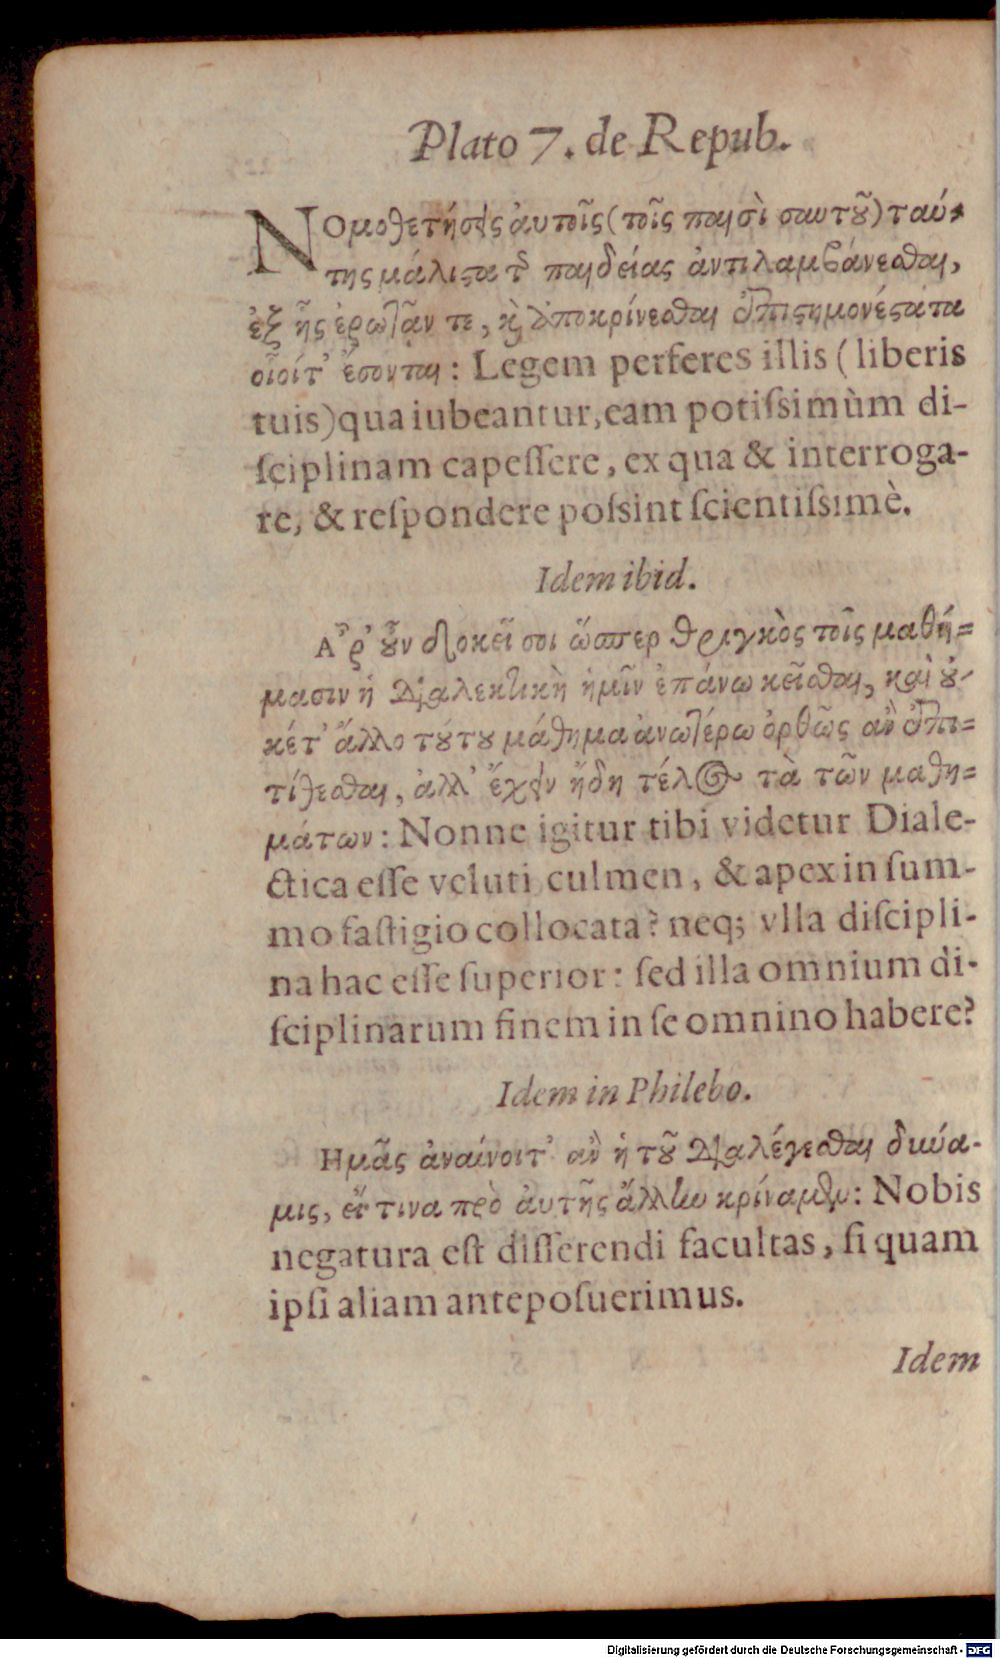 Plato 7. de Repub.
Νομοθετήσεις ἀυτοῖς (τοῖς παισὶ σαυτοῦ) ταύ-
της μάλιστα τῆς παιδείας ἀντιλαμβάνεσθαι,
ἐξ ἧς ἐρωτᾶν τε, καὶ ἀποκρίνεσθαι ἐπιστημονέστατα
οἷοίτ' ἔσονται: Legem perferes illis (liberis
tuis) qua iubeantur, eam potiſsimùm di-
ſciplinam capeſſere, ex qua & interroga-
re, & reſpondere poſsint ſcientiſsimè.
Idem ibid.
Ἆρ' οὖν δοκεῖ σοι ὥσπερ θριγκὸς τοῖς μαθή=
μασιν ἡ διαλεκτικὴ ἡμῖν ἐπάνω κεῖσθαι, καὶ οὐ-
κέτ' ἄλλο τούτου μάθημα ἀνωτέρω ὀρθῶς ἂν ἐπι=
τίθεσθαι, ἀλλ' ἔχειν ἤδη τέλος τὰ τῶν μαθη=
μάτων: Nonne igitur tibi videtur Diale-
ctica eſſe veluti culmen, & apex in ſum-
mo faſtigio collocata? neq; vlla diſcipli-
na hac eſſe ſuperior: ſed illa omnium di-
ſciplinarum finem in ſe omnino habere?
Idem in Philebo.
Ημᾶς ἀναίνοιτ' ἂν ἡ τοῦ διαλέγεσθαι δύνα-
μις, εἴ τινα πρὸ ἀυτῆς ἄλλην κρίναιμεν: Nobis
negatura eſt diſſerendi facultas, ſi quam
ipſi aliam antepoſuerimus.
Idem
Digitalisierung gefördert durch die Deutsche Forschungsgemeinschaft - DFG